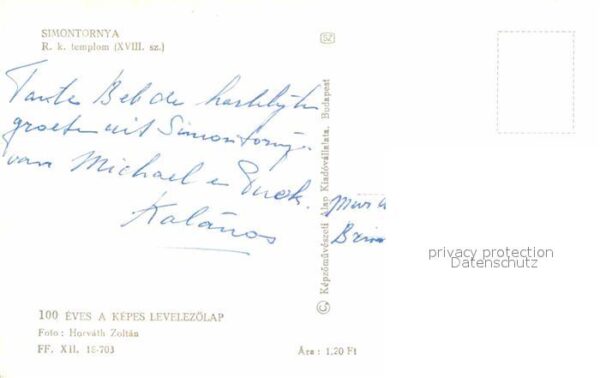 SIMONTORNYA
R. k. templom (XVIII. sz.)
SZ
Tante Beb de hartelijke
groeten uit Simontornya
van Michael en
Kalános
100 ÉVES A KÉPES LEVELEZŐLAP
Foto: Horváth Zoltán
FF. XII. 18-703
Ára: 1,20 Ft
© Képzőművészeti Alap Kiadóvállalata, Budapest
privacy protection
Datenschutz